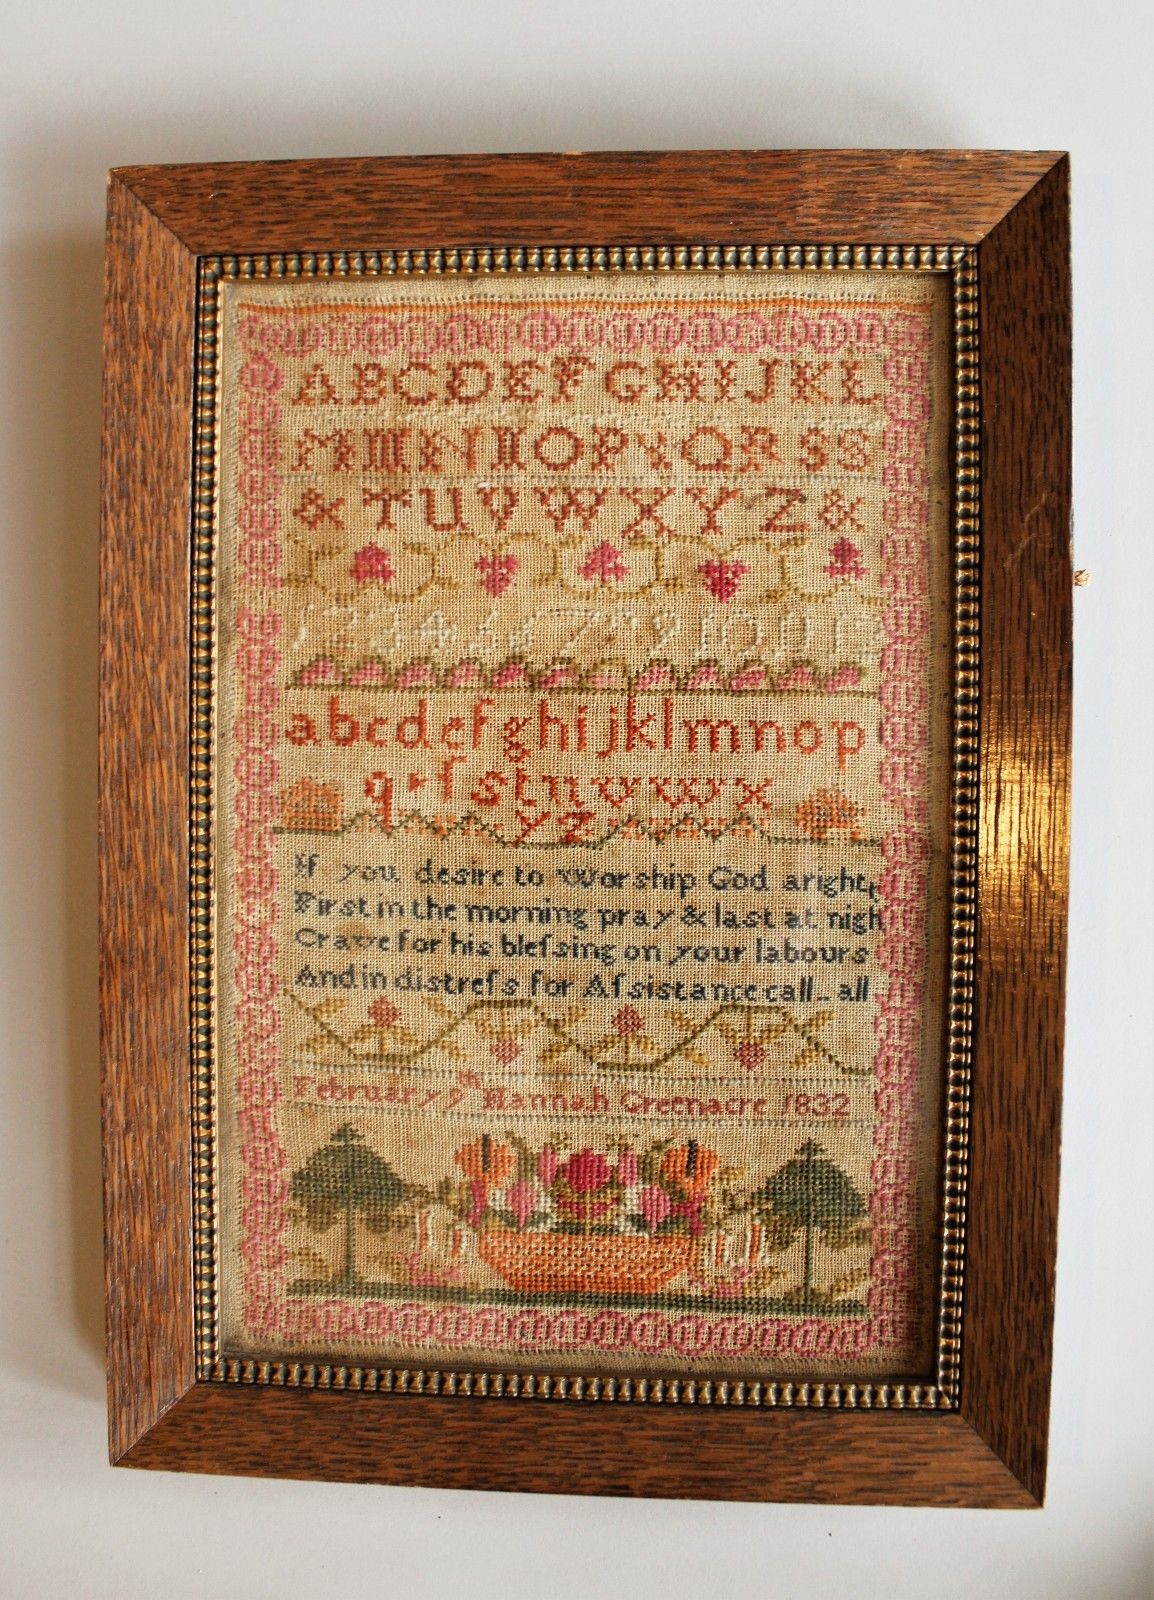 ABCDEFGHIJKL
MNOPQRSS
&TUVWXYZ&
1234 7 9 10 11
abcdefghijklmnop
qrſstuvwx
yz
If you desire to Worship God aright
First in the morning pray & last at nigh
Crave for his bleſsing on your labours
And in distreſs for Aſsistance call_all
February 9th Hannah Greenacre 1832